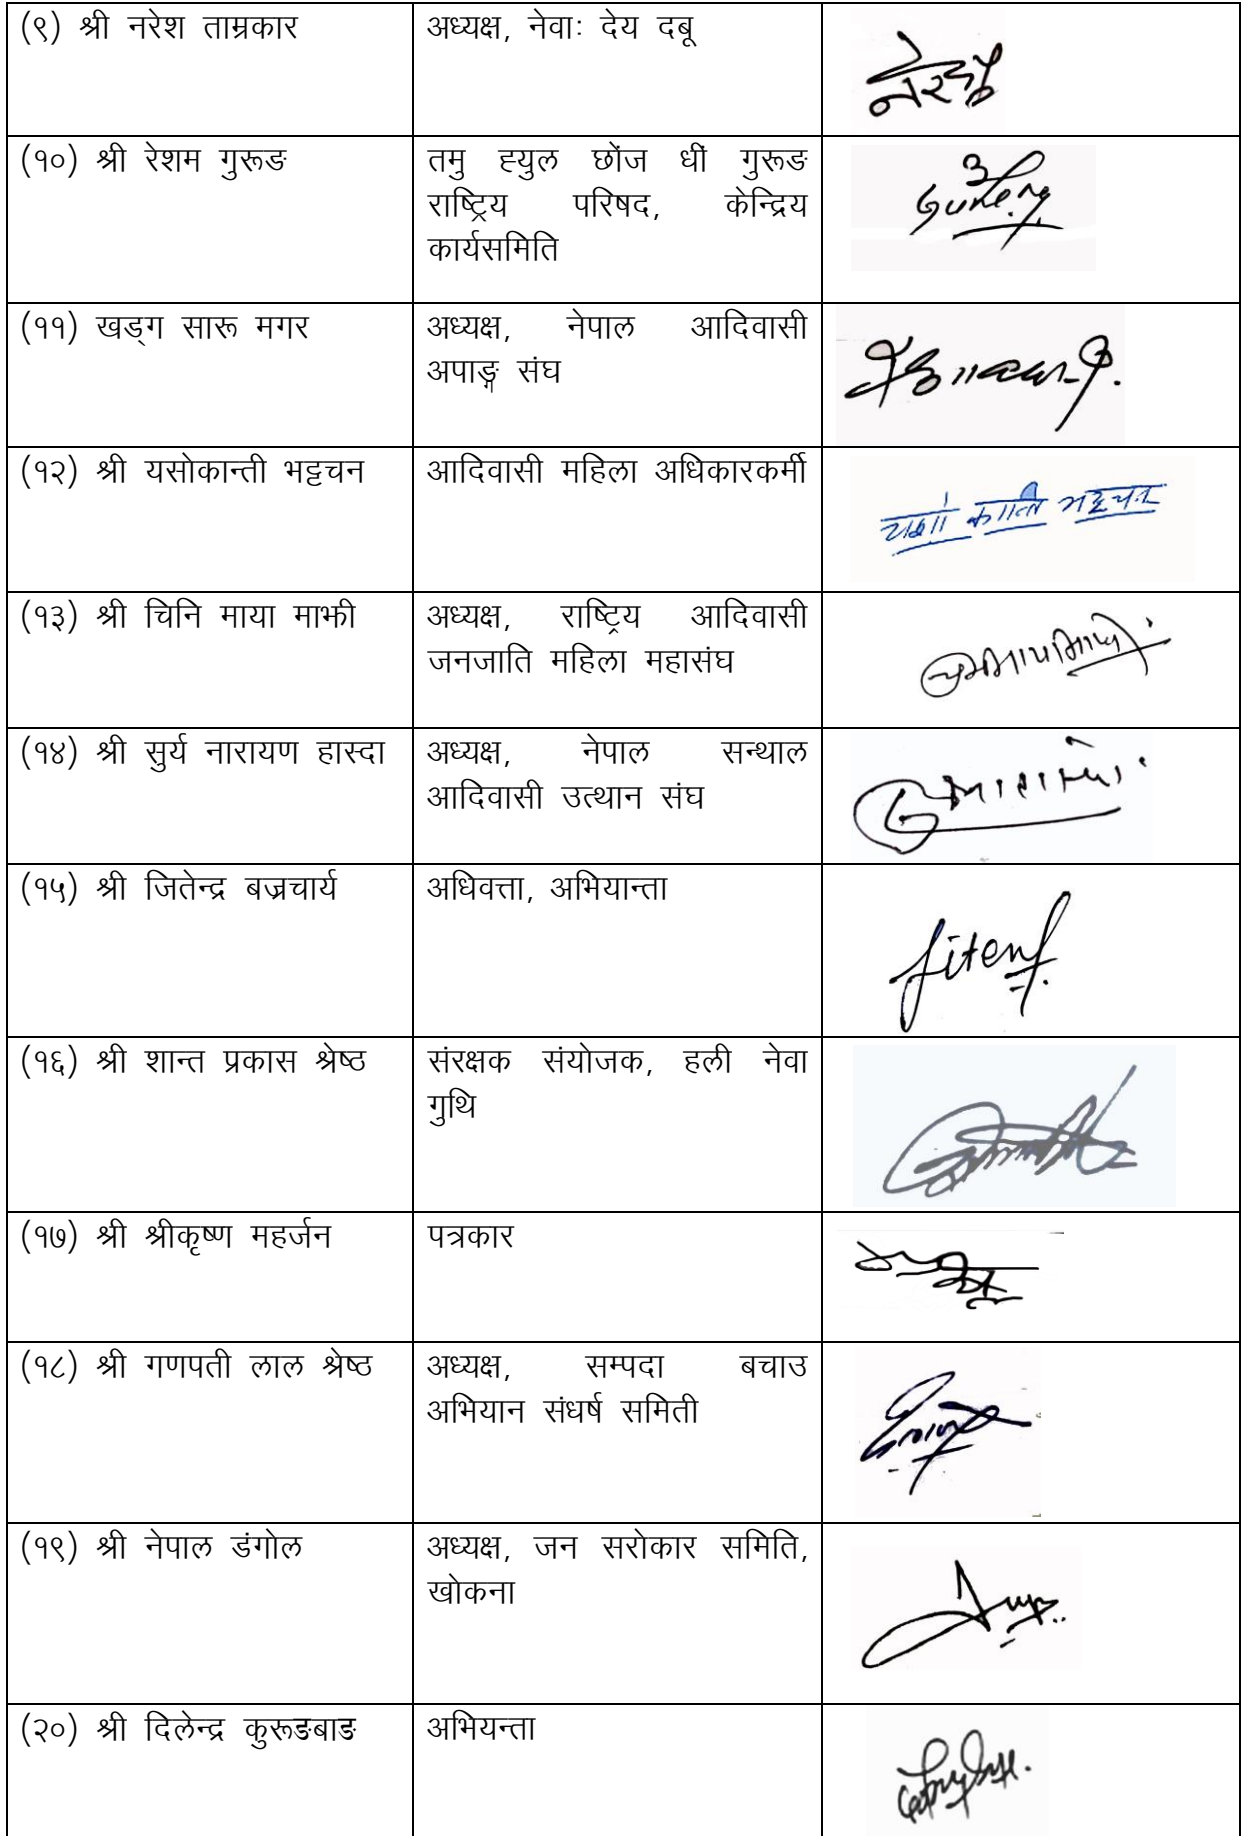 (९) श्री नरेश ताम्रकार
अध्यक्ष, नेवाः देय दबू
(१०) श्री रेशम गुरूङ
तमु ह्युल छोंज धीं गुरूङ
राष्ट्रिय परिषद, केन्द्रिय
कार्यसमिति
(११) खड्ग सारू मगर
अध्यक्ष, नेपाल आदिवासी
अपाङ्ग संघ
(१२) श्री यसोकान्ती भट्टचन
आदिवासी महिला अधिकारकर्मी
(१३) श्री चिनि माया माझी
अध्यक्ष, राष्ट्रिय आदिवासी
जनजाति महिला महासंघ
(१४) श्री सुर्य नारायण हास्दा
अध्यक्ष, नेपाल सन्थाल
आदिवासी उत्थान संघ
(१५) श्री जितेन्द्र बज्रचार्य
अधिवत्ता, अभियान्ता
(१६) श्री शान्त प्रकास श्रेष्ठ
संरक्षक संयोजक, हली नेवा
गुथि
(१७) श्री श्रीकृष्ण महर्जन
पत्रकार
(१८) श्री गणपती लाल श्रेष्ठ
अध्यक्ष, सम्पदा बचाउ
अभियान संधर्ष समिती
(१९) श्री नेपाल डंगोल
अध्यक्ष, जन सरोकार समिति,
खोकना
(२०) श्री दिलेन्द्र कुरूङबाङ
अभियन्ता